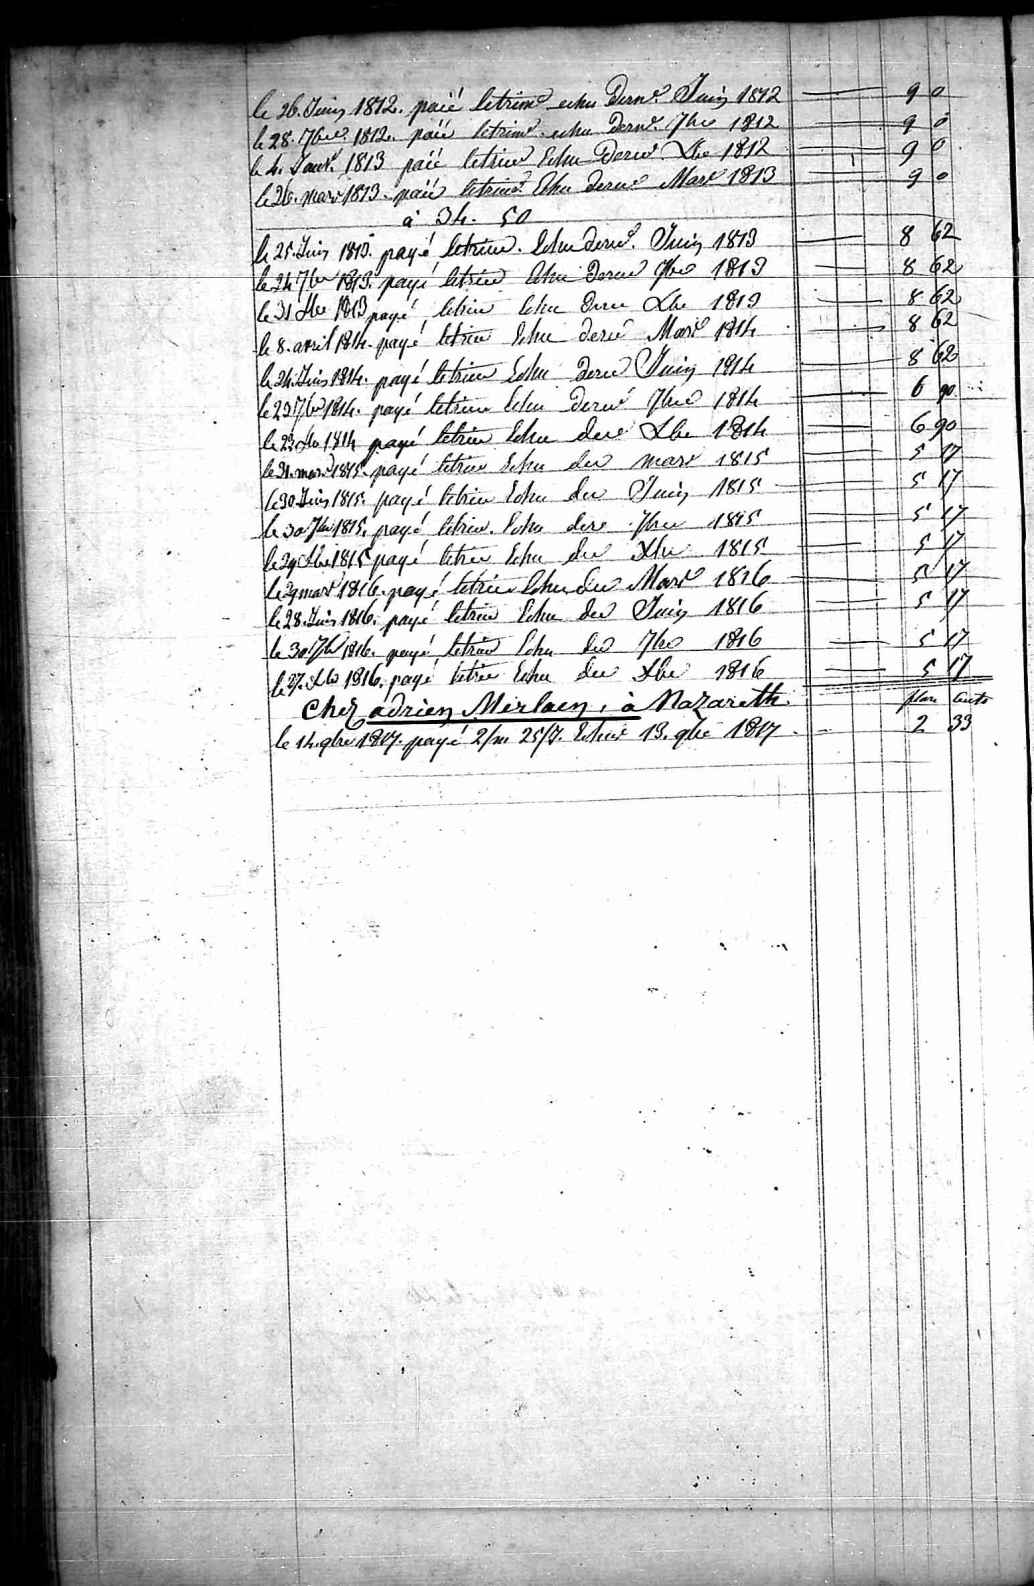 le 26. Juin 1812. paié letrimᵉ echu Dernᵉ. Juin 1812 9 0
le 28. 7bre 1812. paié letrimᵉ. echu dernᵉ. 7bre 1812 9 0
le 4. Janvʳ. 1813 paié letrim Echu Derneʳ. Xbe 1812 9 0
le 26. mars 1813. paié letrimeᵉ. Echu derneʳ Mars 1813 9 0
à 34. 50
le 25. Juin 1813. payé letrim. Echu derneʳ. Juin 1813 8 62
le 24 7bre 1813. payé letrim Echu Derneʳ 7bre 1813 8 62
le 31 Xbre 1813 payé letrim Echu derne Xbe 1813 8 62
le 8. avril 1814. payé letrim Echu derneʳ Mars 1814 8 62
le 24. Juin 1814. payé letrim Echu derneʳ Juin 1814 8 62
le 23 7bre 1814. payé letrim Echu derneʳ 7bre 1814 6 90
le 23 Xbre 1814 payé letrim Echu derᵉ Xbe 1814 6 90
le 31. mars 1815. payé letrim Echu der mars 1815 5 17
le 30 Juin 1815. payé letrim Echu der Juin 1815 5 17
le 30 7bre 1815. payé letrim. Echu derᵉ 7bre 1815 5 17
le 29 Xbre 1815 payé letrim Echu der Xbe 1815 5 17
le 29 mars 1816. payé letrim Echu der Mars 1816 5 17
le 28. Juin 1816. payé letrim Echu der Juin 1816 5 17
le 30 7bre 1816. payé letrim Echu der 7bre 1816 5 17
le 27. Xbre 1816. payé letrim Echu der Xbe 1816 5 17
Chez adrien Mirlaen, à Nazareth
le 14. 9bre 1817. payé 2/m 25/7. Echus 13. 9bre 1817 2 33